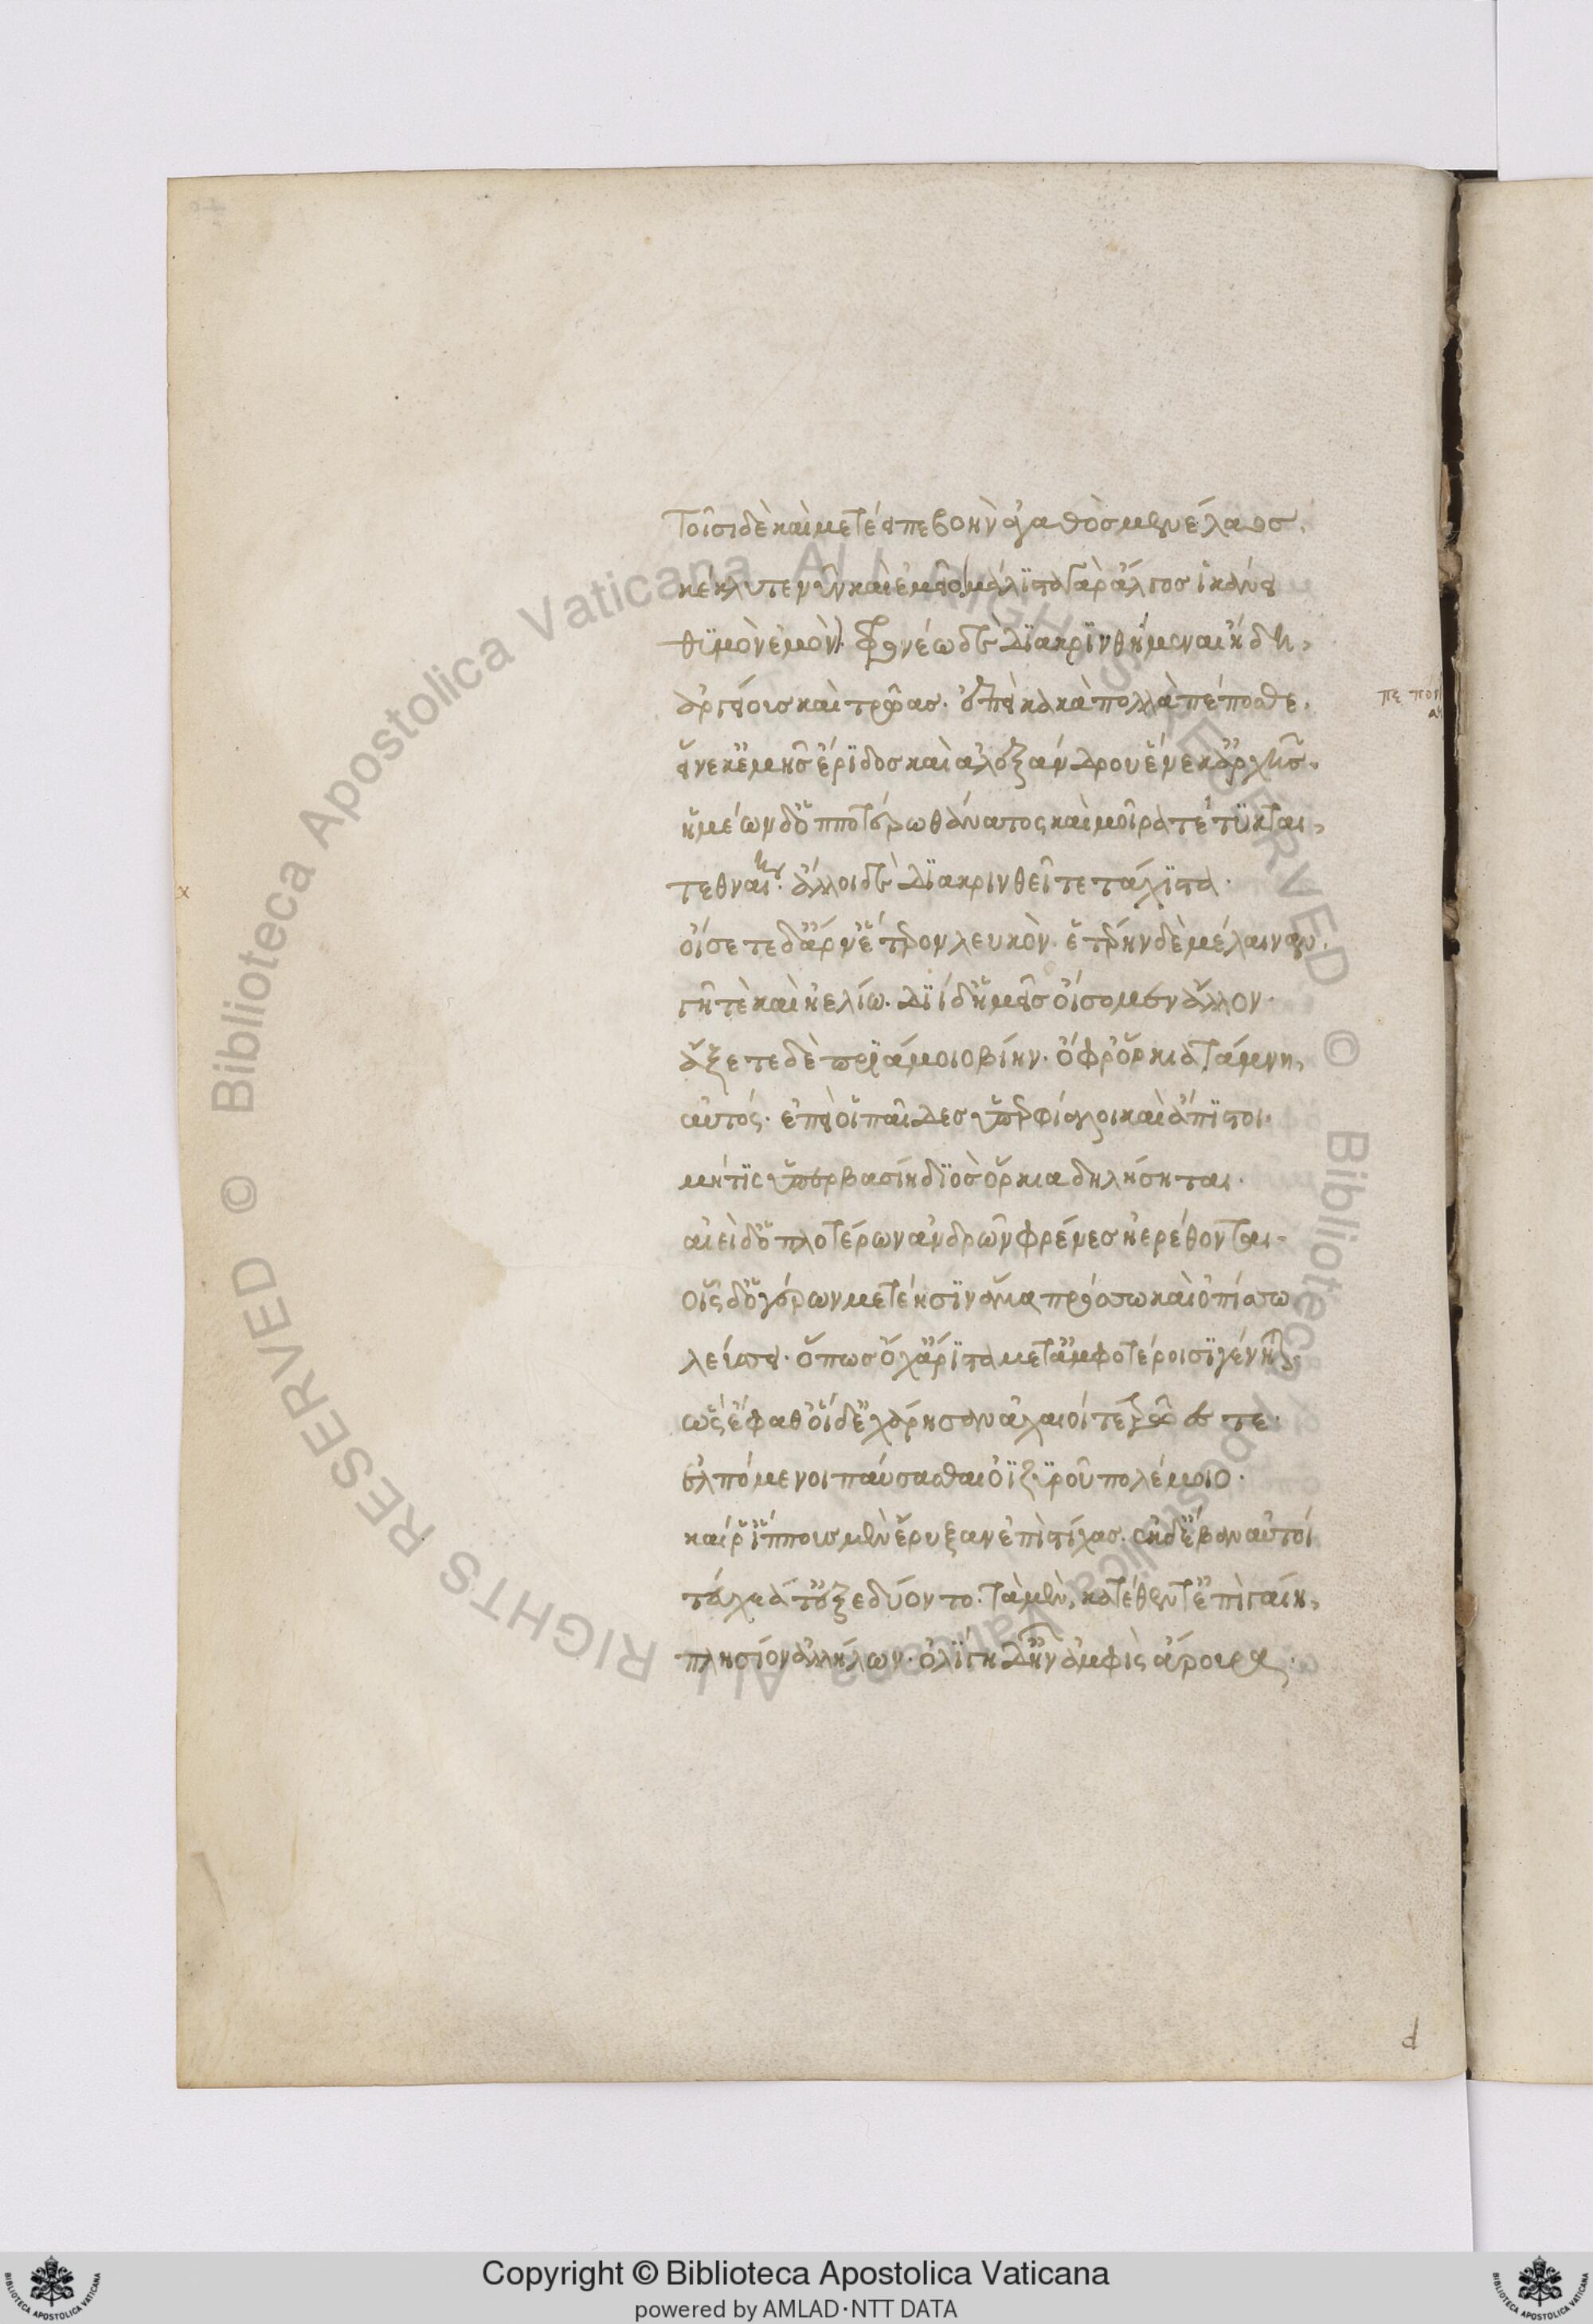 τοῖσι δὲ καὶ μετέειπε βοὴν ἀγαθὸς μενέλαος.
κέκλυτε νῦν καὶ ἐμεῖο μάλϊστα γὰρ ἄλγος ἱκάνει
θϋμὸν ἐμὸν. φρονέω δὲ δϊακρϊνθήμεναι ἤδη,
ἀργείοις καὶ τρῶας. ἐπεὶ κακὰ πολλὰ πέποσθε.
εἵνεκ' ἐμῆς ἔρϊδος καὶ ἀλεξάνδρου ἕνεκ' ἀρχῆς.
ἡμέων δ' ὁπποτέρω θάνατος καὶ μοῖρα τέτϋκται,
τεθναίη. ἄλλοι δὲ δϊακρινθεῖτε τάχϊστα.
οἴσετε δ' ἄρν' ἕτερον λευκὸν. ἑτέρην δὲ μέλαιναν.
γῆ τὲ καὶ ἠελίω. δϊί δ' ἡμεῖς οἴσομεν ἄλλον.
ἄξετε δὲ πρϊάμοιο βίην. ὄφρ' ὅρκια τάμνη,
αὐτός. ἐπεὶ οἱ παῖδες ὑπερφίαλοι καὶ ἄπϊστοι.
μήτϊς ὑπερβασίη δϊὸς ὅρκια δηλήσηται.
αἰεὶ δ' ὁπλοτέρων ἀνδρῶν φρένες ἠερέθονται.
οἷς δ' ὁ γέρων μετέησϊν ἅμα πρόσσω καὶ ὀπίσσω
λεύσσει. ὅπως ὄχ' ἄρϊστα μετ' ἀμφοτέροισϊ γένηται.
ὣς ἔφαθ' οἱ δ' ἐχάρησαν ἀχαιοί τε τρῶές τε.
ἐλπόμενοι παύσασθαι ὀϊζϋροῦ πολέμοιο.
καί ῥ' ἵππους μὲν ἔρυξαν ἐπὶ στίχας. ἐκ δ' ἔβαν αὐτοί
τεύχεά τ' ἐξεδύοντο. τὰ μὲν, κατέθεντ' ἐπὶ γαίη,
πλησίον ἀλλήλων. ὀλίγη δ' ἦν ἀμφὶς ἄρουρα.
d
Copyright © Biblioteca Apostolica Vaticana
powered by AMLAD·NTT DATA